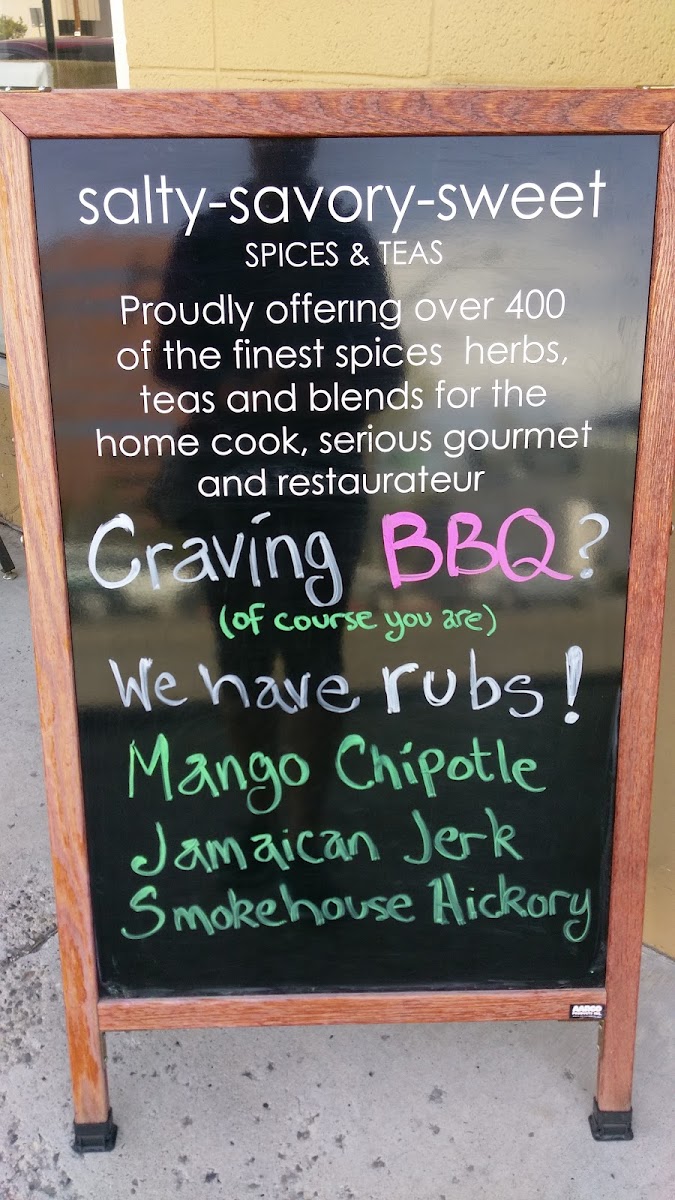 salty-savory-sweet
SPICES & TEAS
Proudly offering over 400
of the finest spices herbs,
teas and blends for the
home cook, serious gourmet
and restaurateur
Craving BBQ?
(of course you are)
We have rubs!
Mango Chipotle
Jamaican Jerk
Smokehouse Hickory
AARCO